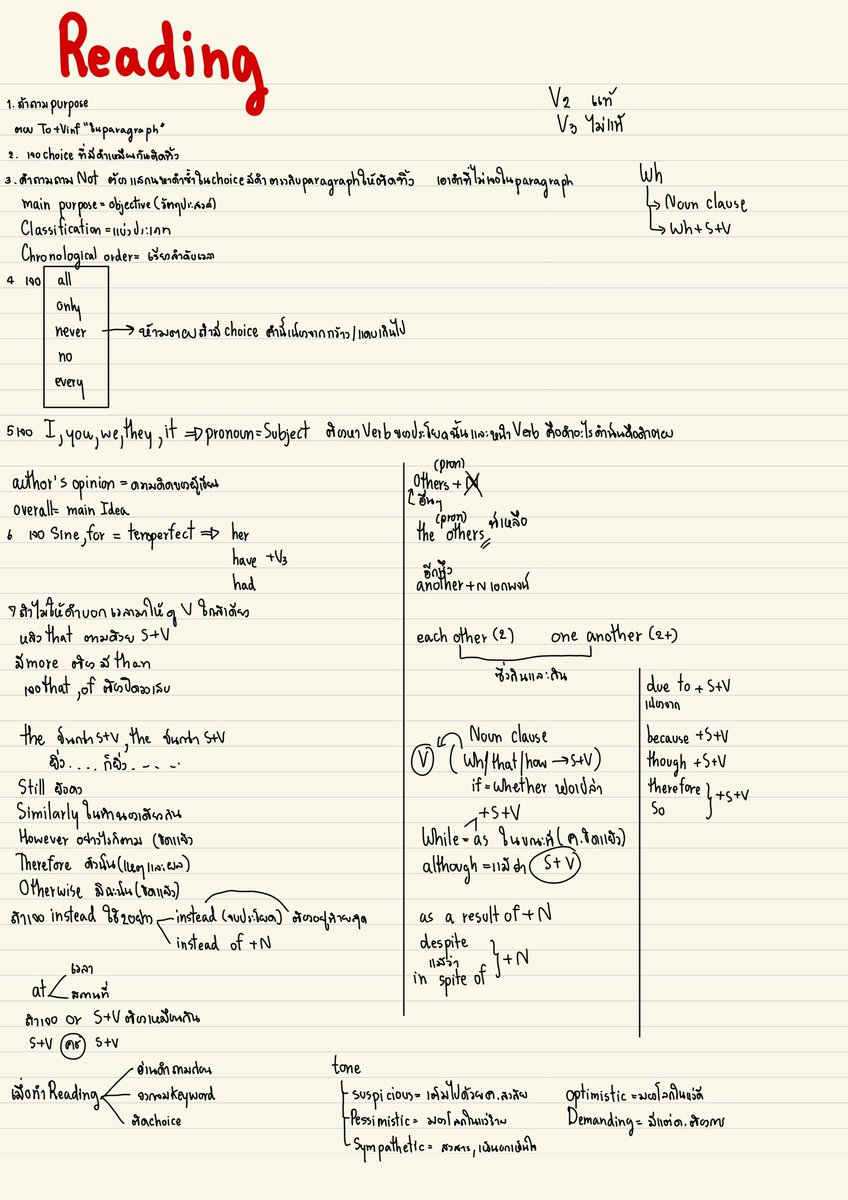 Reading
1. ถ้าถาม purpose
ตอบ To + Vinf "ในparagraph"
V2 แท้
V3 ไม่แท้
2. เจอ choice ที่มีคำเหมือนกันตัดทิ้ง
3. คำถามถาม Not ต้องแสกนหาคำซ้ำในchoice มีคำตรงกับparagraphให้ตัดทิ้ง เอาคำที่ไม่เจอในparagraph
main purpose = objective (วัตถุประสงค์)
Classification = แบ่งประเภท
Chronological order = เรียงลำดับเวลา
Wh
→ Noun clause
→ Wh + S+V
4 เจอ all
only
never → ห้ามตอบถ้ามี choice คำนี้เนื่องจากกว้าง/แคบเกินไป
no
every
5 เจอ I, you, we, they, it ⇒ pronoun = Subject ต้องหา Verb ของประโยคนั้นและหน้า Verb คือคำอะไรคำนั้นคือคำตอบ
author's opinion = ความคิดของผู้เขียน
overall = main Idea
6 เจอ Sine, for = tenseperfect ⇒ her
have +V3
had
7 ถ้าไม่ให้คำบอกเวลามาให้ดู V ใกล้เคียง
หลัง that ตามด้วย S+V
มี more ต้องมี than
เจอ that, of ต้องปิดวงเล็บ
the ขั้นกว่า S+V, the ขั้นกว่า S+V
ยิ่ง .... ก็ยิ่ง ....
Still ยังคง
Similarly ในทำนองเดียวกัน
However อย่างไรก็ตาม (ขัดแย้ง
Therefore ดังนั้น (เหตุและผล)
Otherwise มิฉะนั้น (ขัดแย้ง)
ถ้าเจอ instead ใช้2อย่าง instead (จบประโยค) ต้องอยู่ท้ายสุด
instead of + N
at เวลา
สถานที่
ถ้าเจอ or S+V ต้องเหมือนกัน
S+V S+V
(pron)
Others + N
อื่นๆ
(pron)
the others ที่เหลือ
อีกหนึ่ง
another + N เอกพจน์
each other (2) one another (2+)
ซึ่งกันและกัน
Noun clause
V (Wh/that/how → S+V)
if = whether หรือเปล่า
+ S+V
While = as ในขณะที่ (ค.ขัดแย้ง)
although = แม้ว่า S+V
as a result of + N
despite
แม้ว่า + N
in spite of
due to + S+V
เนื่องจาก
because + S+V
though + S+V
therefore
so } + S+V
เมื่อทำ Reading
อ่านคำถามก่อน
วงกลม keyword
ตัดchoice
tone
suspicious = เต็มไปด้วยค.สงสัย
Pessimistic = มองโลกในแง่ร้าย
Sympathetic = สงสาร, เห็นอกเห็นใจ
optimistic = มองโลกในแง่ดี
Demanding = มีแต่ค.ต้องการ